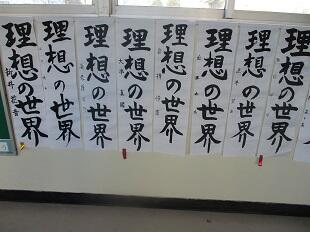 理想の世界
理想の世界
理想の世界
理想の世界
理想の世界
理想の世界
理想の世界
理想の世界